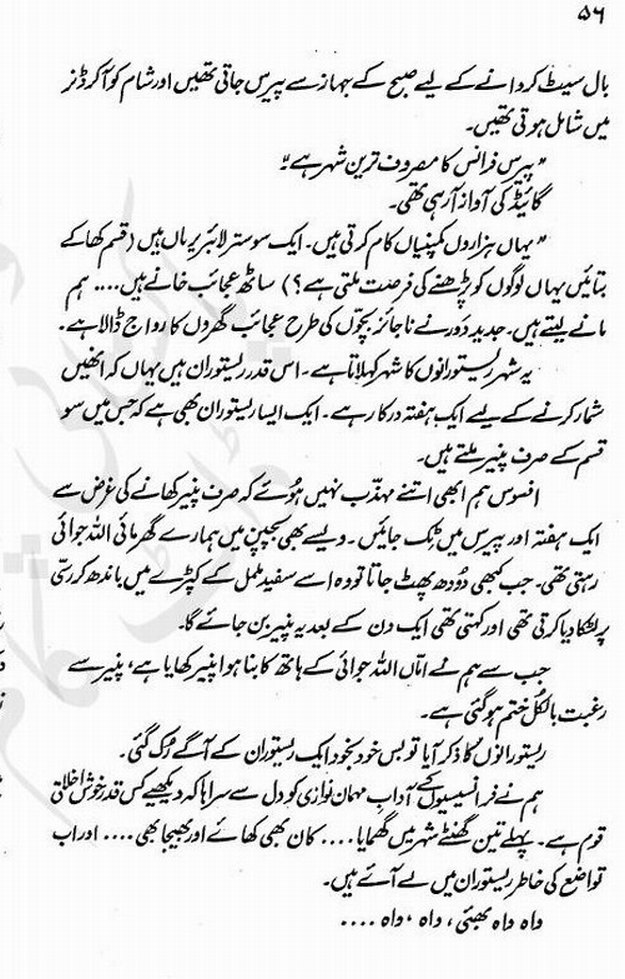 ۵۶
بال سیٹ کروانے کے لیے صبح کے جہاز سے پیرس جاتی تھیں اور شام کو آ کر ڈنر
میں شامل ہوتی تھیں۔
"پیرس فرانس کا مصروف ترین شہر ہے۔"
گائیڈ کی آواز آ رہی تھی۔
"یہاں ہزاروں کمپنیاں کام کرتی ہیں۔ ایک سو ستر لائبریریاں ہیں (قسم کھا کے
بتائیں یہاں لوگوں کو پڑھنے کی فرصت ملتی ہے؟) ساٹھ عجائب خانے ہیں.... ہم
مانے لیتے ہیں۔ جدید دَور نے ناجائز بچّوں کی طرح عجائب گھروں کا رواج ڈالا ہے۔
یہ شہر ریستورانوں کا شہر کہلاتا ہے۔ اس قدر ریستوران ہیں یہاں کہ انھیں
شمار کرنے کے لیے ایک ہفتہ درکار ہے۔ ایک ایسا ریستوران بھی ہے کہ جس میں سو
قسم کے صرف پنیر ملتے ہیں۔
افسوس ہم ابھی اتنے مہذّب نہیں ہُوئے کہ صرف پنیر کھانے کی غرض سے
ایک ہفتہ اور پیرس میں ٹِک جائیں۔ ویسے بھی بچپن میں ہمارے گھر مائی اللہ جوائی
رہتی تھی۔ جب کبھی دُودھ پھٹ جاتا تو وہ اسے سفید ململ کے کپڑے میں باندھ کر رسّی
پر لٹکا دیا کرتی تھی اور کہتی تھی ایک دن کے بعد یہ پنیر بن جائے گا۔
جب سے ہم نے امّاں اللہ جوائی کے ہاتھ کا بنا ہوا پنیر کھایا ہے، پنیر سے
رغبت بالکُل ختم ہو گئی ہے۔
ریستورانوں کا ذکر آیا تو بس خود بخود ایک ریستوران کے آگے رُک گئی۔
ہم نے فرانسیسیوں کے آدابِ مہمان نوازی کو دل سے سراہا کہ دیکھیے کس قدر خوش اخلاق
قوم ہے۔ پہلے تین گھنٹے شہر میں گھمایا.... کان بھی کھائے اور بھیجا بھی.... اور اب
تواضع کی خاطر ریستوران میں لے آئے ہیں۔
واہ واہ بھئی، واہ، واہ....